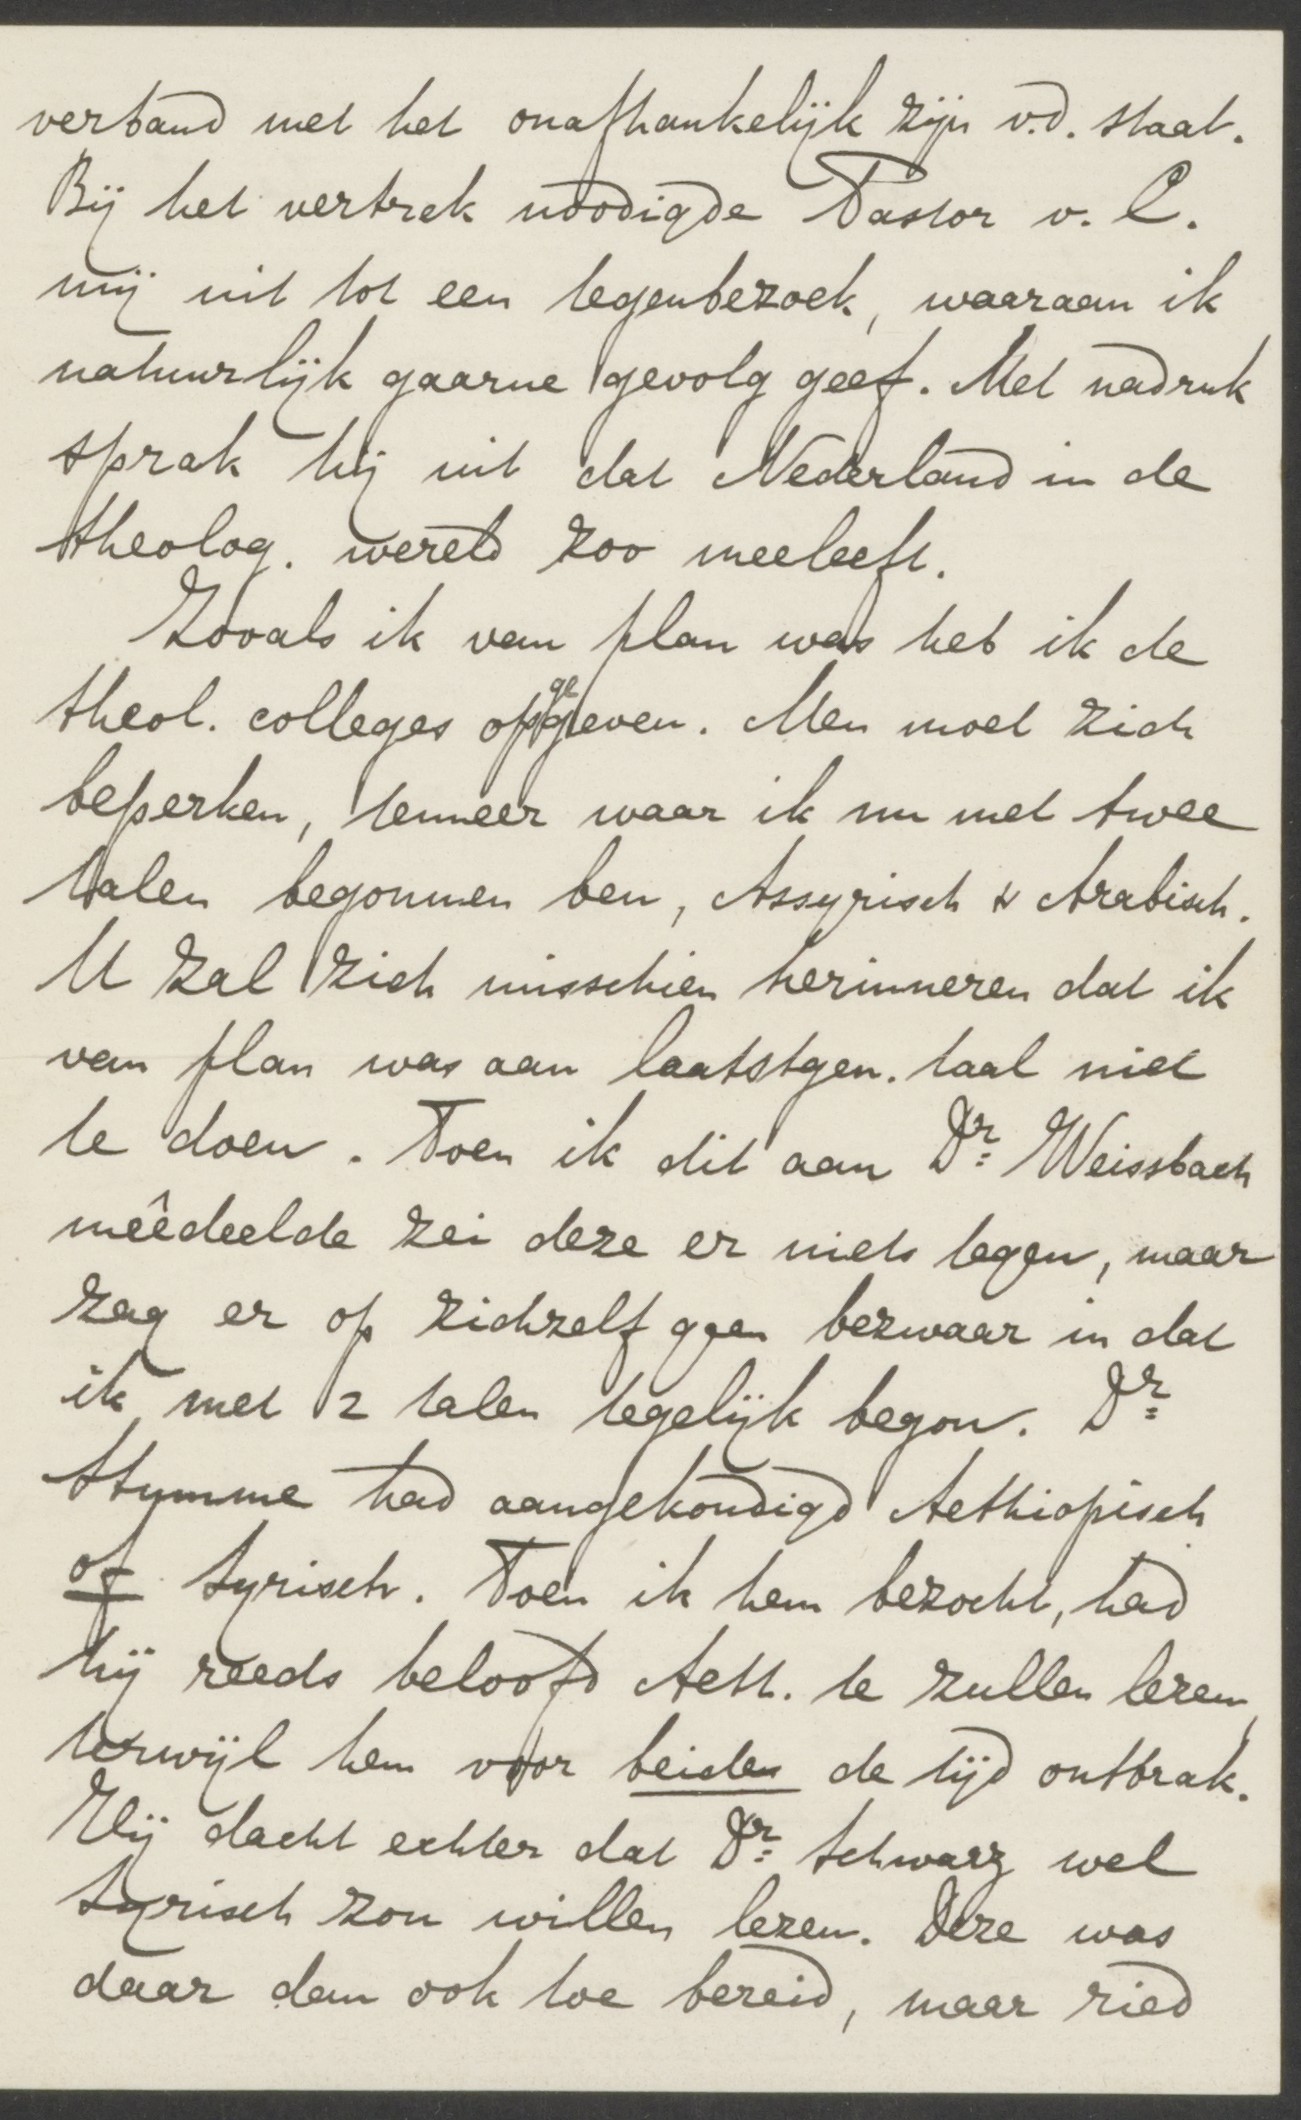 verband met het onafhankelijk zijn v.d. staat.
Bij het vertrek noodigde Pastor v. C.
mij uit tot een tegenbezoek, waaraan ik
natuurlijk gaarne gevolg geef. Met nadruk
sprak hij uit dat Nederland in de
theolog. wereld zoo meeleeft.
Zooals ik van plan was heb ik de
theol. colleges opgegeven. Men moet zich
beperken, temeer waar ik nu met twee
talen begonnen ben, Assyrisch & Arabisch.
U zal zich misschien herinneren dat ik
van plan was aan laatstgen. taal niet
te doen. Toen ik dit aan Dr. Weissbach
meêdeelde zei deze er niets tegen, maar
zag er op zichzelf geen bezwaar in dat
ik met 2 talen tegelijk begon. Dr.
Stumme had aangekondigd Aethiopisch
of Syrisch. Toen ik hem bezocht, had
hij reeds beloofd Aeth. te zullen lezen,
terwijl hem voor beiden de tijd ontbrak.
Hij dacht echter dat Dr. Schwarz wel
Syrisch zou willen lezen. Deze was
daar dan ook toe bereid, maar ried